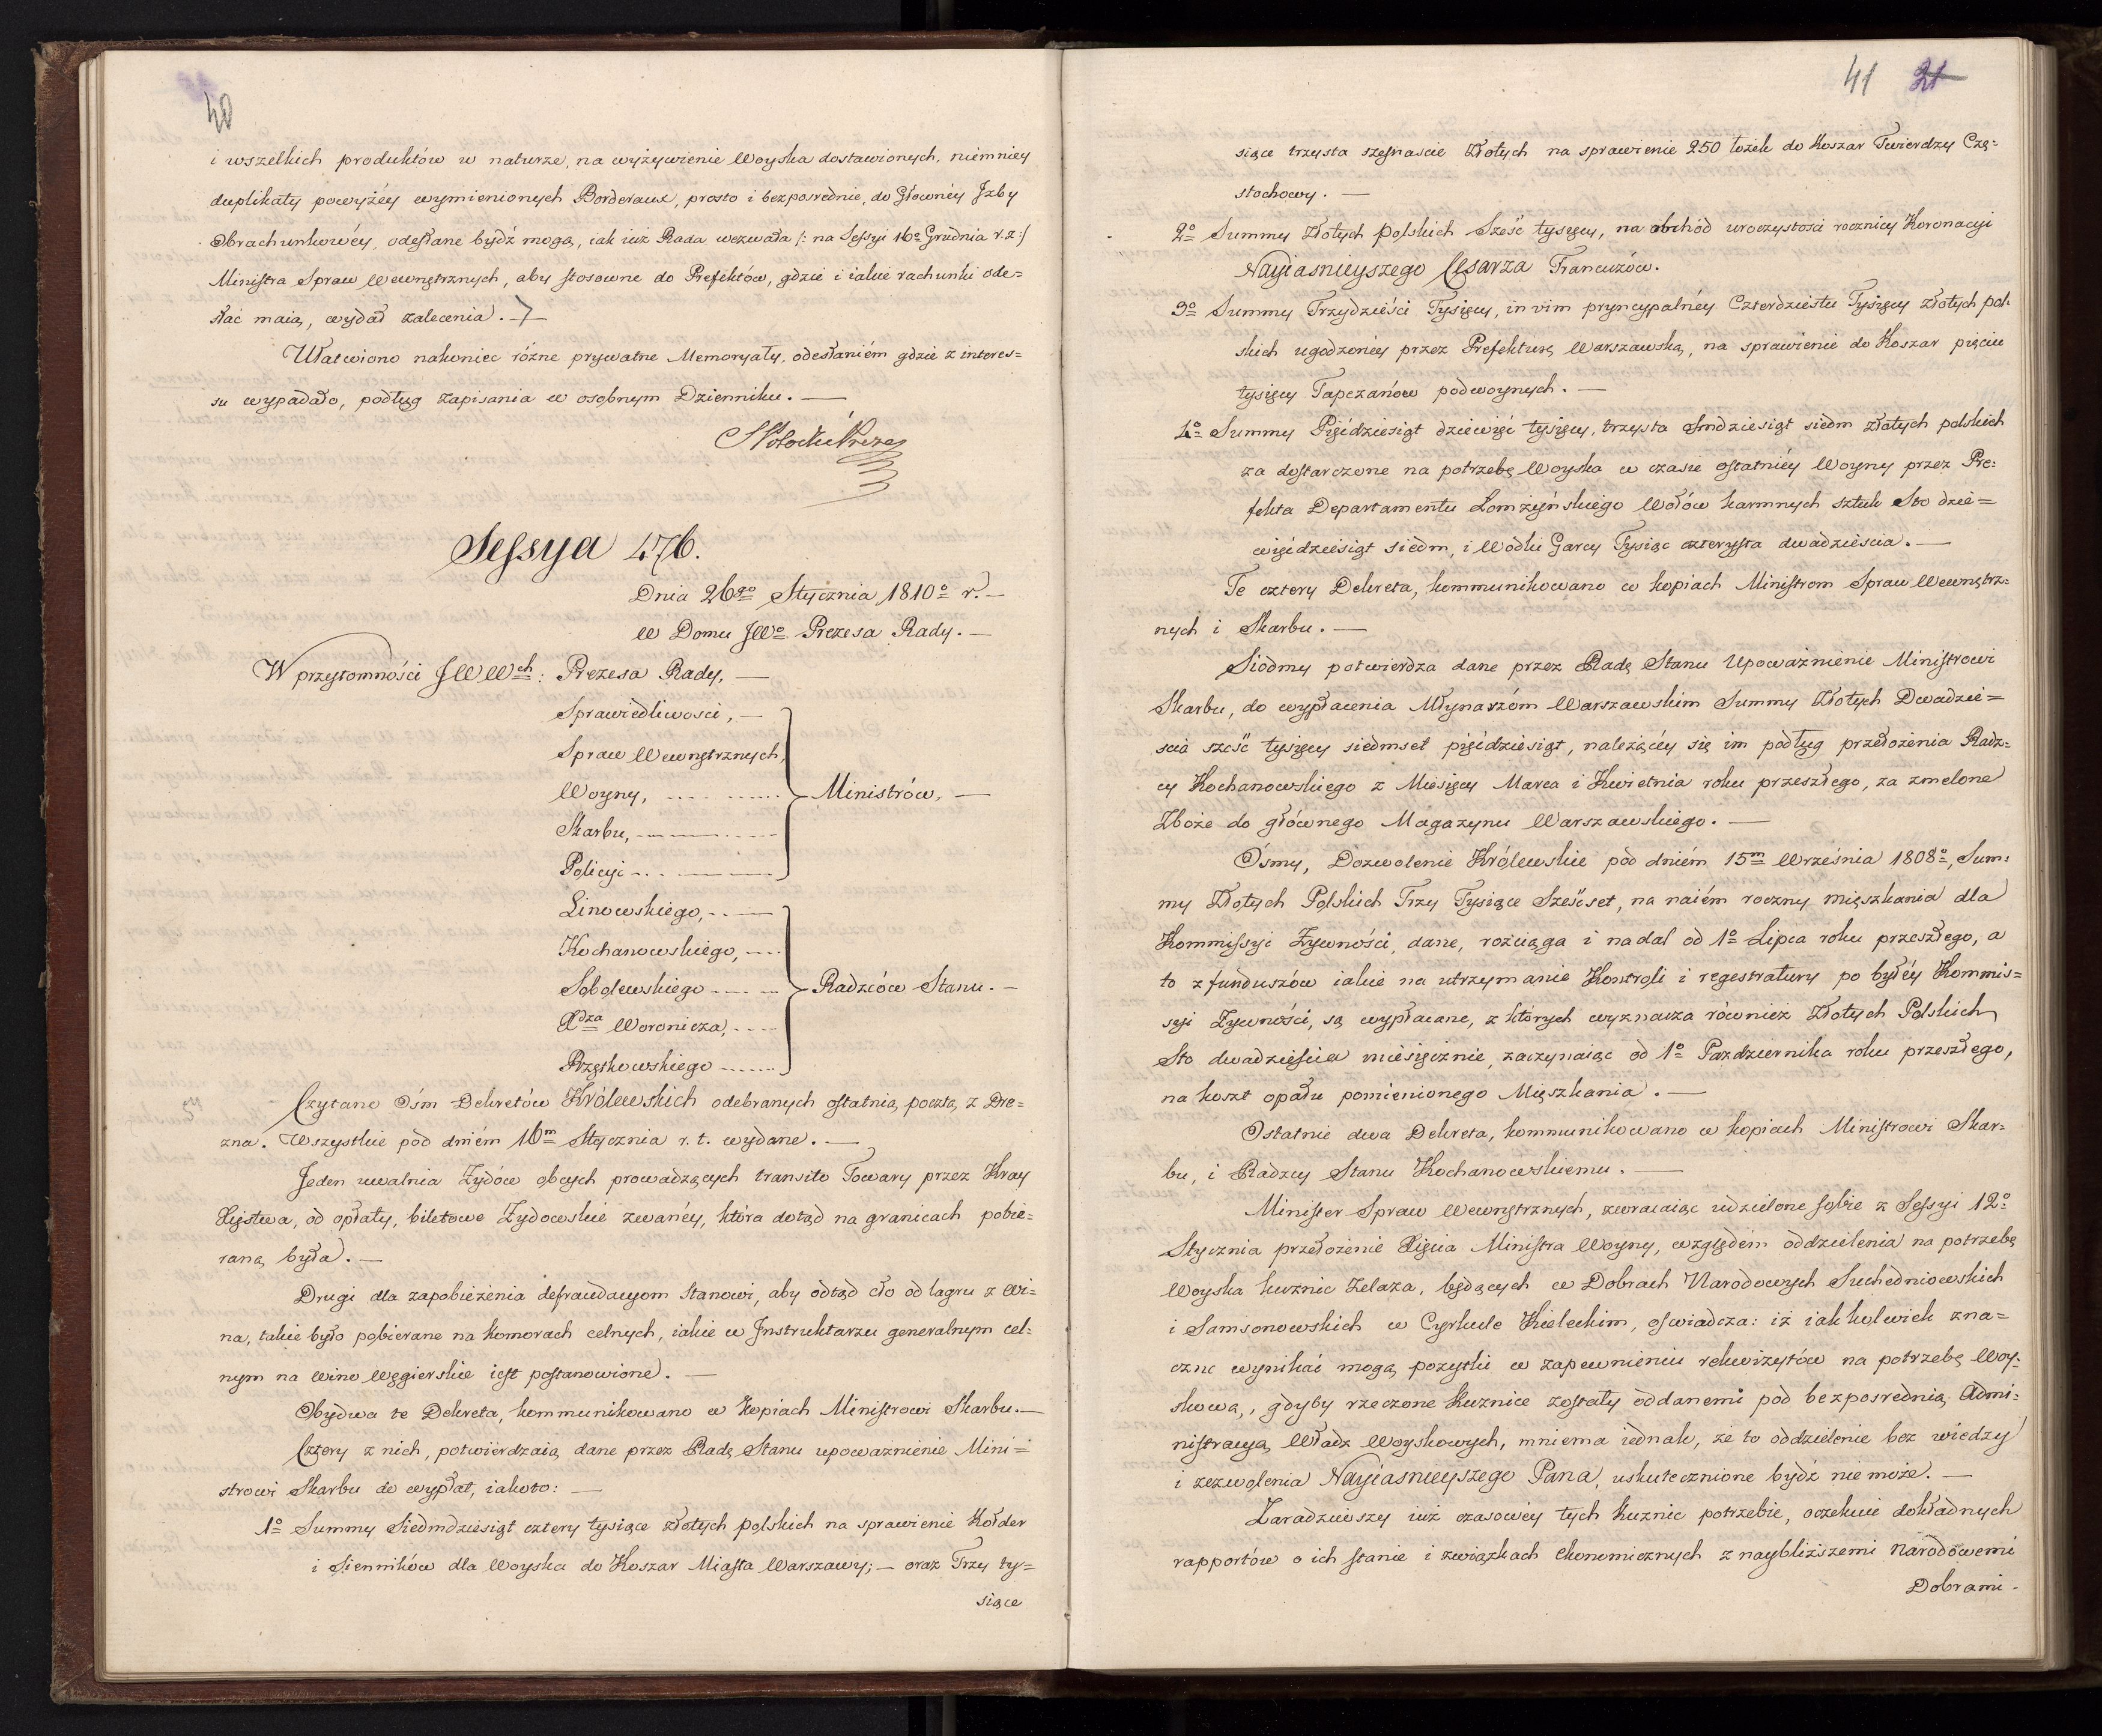 40
i wszelkich produktów w naturze, na wyżywienie Woyska dostawionych, niemniey
duplikaty powyżéy wymienionych Borderaux, prosto i bezposrednie, do Głownéy Jzby
Obrachunkowéy, odesłane bydź mogą, iak iuż Rada wezwała /: na Sessyi 16º Grudnia r. z :/
Ministra Spraw Wewnętrznych, aby stosowne do Prefektów, gdzie i iakie rachunki ode=
słać maią, wydał zalecenia. —
Ułatwiono nakoniec różne prywatne Memoryały, odesłaniém gdzie z interes=
su wypadało, podług zapisania w osobnym Dzienniku. —
Sessya 476.
Dnia 26go Stycznia 1810º r. —
w Domu JWº Prezesa Rady. —
W przytomności JWWch: Prezesa Rady, —
Sprawiedliwosci, —
Spraw Wewnętrznych,
Woyny, Ministrów, —
Skarbu,
Policyi
Linowskiego,
Kochanowskiego,
Sobolewskiego Radzców Stanu. —
Xdza Woronicza,
Rzętkowskiego
Czytano Ośm Dekretów Królewskich odebranych ostatnią pocztą z Dre=
zna. Wszystkie pod dniém 16m Stycznia r. t. wydane. —
Jeden uwalnia Żydów obcych prowadzących transito Towary przez Kray
Xięstwa, od opłaty, biletowe Żydowskie zwanéy, która dotąd na granicach pobie=
raną była. —
Drugi dla zapobieżenia defraudacyom stanowi, aby odtąd cło od lagru z wi=
na, takie było pobierane na komorach celnych, iakie w Jnstruktarzu generalnym cel=
nym na wino węgierskie iest postanowione. —
Obydwa te Dekreta, kommunikowano w Kopiach Ministrowi Skarbu. —
Cztery z nich, potwierdzaią dane przez Radę Stanu upoważnienie Mini=
strowi Skarbu do wypłat, iakoto: —
1º Summy Siedmdziesiąt cztery tysiące złotych polskich na sprawienie Kołder
i Sienników dla Woyska do Koszar Miasta Warszawy; — oraz Trzy ty=
siące
41 21
siące trzysta szesnascie Złotych na sprawienie 250 łożek do Koszar Twierdzy Czę=
stochowy. —
2º Summy Złotych polskich Sześć tysięcy, na obchód uroczystosci rocznicy Koronacyi
Nayiasnieyszego Cesarza Francuzów.
3º Summy Trzydzieści Tysięcy, in vim pryncypalnéy Czterdziestu Tysięcy złotych pol=
skich ugodzonéy przez Prefekturę Warszawską, na sprawienie do Koszar pięciu
tysięcy Tapczanów podwoynych. —
4º Summy Pięćdziesiąt dziewięć tysięcy, trzysta ośmdziesiąt siedm złotych polskich
za dostarczone na potrzebę Woyska w czasie ostatniéy Woyny przez Pre=
fekta Departamentu Łomżyńskiego Wołów karmnych sztuk Sto dzie=
więćdziesiąt siedm, i Wodki Garcy Tysiąc czterysta dwadzieścia. —
Te cztery Dekreta, kommunikowano w kopiach Ministrom Spraw Wewnętrz=
nych i Skarbu. —
Siodmy potwierdza dane przez Radę Stanu Upoważnienie Ministrowi
Skarbu, do wypłacenia Młynarzóm Warszawskim Summy Złotych Dwadzie=
scia sześć tysięcy siedmset pięćdziesiąt, należącéy się im podług przełożenia Radz=
cy Kochanowskiego z Miesięcy Marca i Kwietnia roku przeszłego, za zmelone
Zboże do głównego Magazynu Warszawskiego. —
Ósmy, Dozwolenie Królewskie pod dniém 15m Września 1808º, Sum=
my Złotych Polskich Trzy Tysiące Sześćset, na naiém roczny mięszkania dla
Kommissyi Żywności, dane, rozciąga i nadal od 1º Lipca roku przeszłego, a
to z funduszów iakie na utrzymanie Kontroli i regestratury po byłéy Kommis=
syi Żywności, są wypłacane, z których wyznacza również Złotych Polskich
Sto dwadzieścia miesięcznie, zaczynaiąc od 1º Pazdziernika roku przeszłego,
na koszt opału pomienionego Mięszkania. —
Ostatnie dwa Dekreta, kommunikowano w kopiach Ministrowi Skar=
bu, i Radzcy Stanu Kochanowskiemu. —
Minister Spraw Wewnętrznych, zwracaiąc udzielone sobie z Sessyi 12º
Stycznia przełożenie Xięcia Ministra Woyny, względem oddzielenia na potrzebę
Woyska kuznic żelaza, będących w Dobrach Narodowych Suchedniowskich
i Samsonowskich w Cyrkule Kieleckim, oswiadcza: iż iakkolwiek zna=
czne wynikać mogą pozytki w zapewnieniu rekwizytów na potrzebę Woy=
skową, gdyby rzeczone Kuznice zostały oddanemi pod bezposrednią Admi=
nistracyą Władz Woyskowych, mniema iednak, że to oddzielenie bez wiedzy
i zezwolenia Nayiasnieyszego Pana, uskutecznione bydź nie może. —
Zaradziwszy iuż czasowéy tych kuznic potrzebie, oczekuie dokładnych
rapportów o ich stanie i związkach ekonomicznych z nayblizszemi narodowemi
Dobrami.